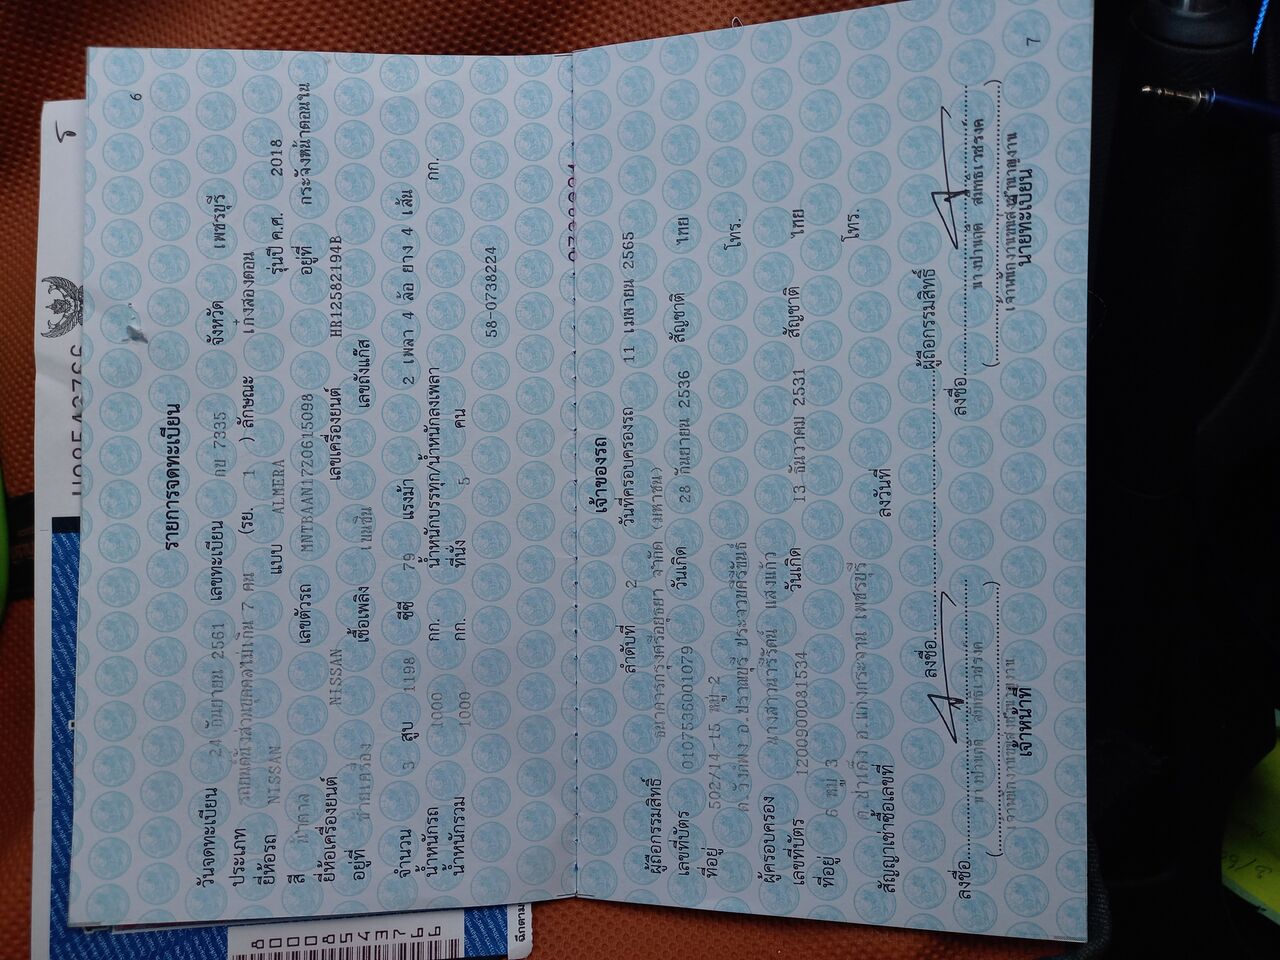 6
รายการจดทะเบียน
วันจดทะเบียน 24 กันยายน 2561 เลขทะเบียน กบ 7335 จังหวัด เพชรบุรี
ประเภท รถยนต์นั่งส่วนบุคคลไม่เกิน 7 คน (รย. 1 ) ลักษณะ เก๋งสองตอน
ยี่ห้อรถ NISSAN แบบ ALMERA รุ่นปี ค.ศ. 2018
สี น้ำตาล เลขตัวรถ MNTBAAN17Z0615098 อยู่ที่ กระจังหน้าตอนใน
ยี่ห้อเครื่องยนต์ NISSAN เลขเครื่องยนต์ HR12582194B
อยู่ที่ ท้ายเครื่อง เชื้อเพลิง เบนซิน เลขถังแก๊ส
จำนวน 3 สูบ 1198 ซีซี 79 แรงม้า 2 เพลา 4 ล้อ ยาง 4 เส้น
น้ำหนักรถ 1000 กก. น้ำหนักบรรทุก/น้ำหนักลงเพลา กก.
น้ำหนักรวม 1000 กก. ที่นั่ง 5 คน
58-0738224
เจ้าของรถ
ลำดับที่ 2 วันที่ครอบครองรถ 11 เมษายน 2565
ผู้ถือกรรมสิทธิ์ ธนาคารกรุงศรีอยุธยา จำกัด (มหาชน)
เลขที่บัตร 0107536001079 วันเกิด 28 กันยายน 2536 สัญชาติ ไทย
ที่อยู่ 502/14-15 หมู่ 2 โทร.
ต.วังก์พง อ.ปราณบุรี ประจวบคีรีขันธ์
ผู้ครอบครอง นางสาวนารีรัตน์ แสงแก้ว
เลขที่บัตร 1200900081534 วันเกิด 13 ธันวาคม 2531 สัญชาติ ไทย
ที่อยู่ 6 หมู่ 3 โทร.
ต.ป่าเด็ง อ.แก่งกระจาน เพชรบุรี
สัญญาเช่าซื้อเลขที่ ลงวันที่
ลงชื่อ ผู้ถือกรรมสิทธิ์
ลงชื่อ ลงชื่อ
เจ้าหน้าที่ นายทะเบียน
7
8000854376 6